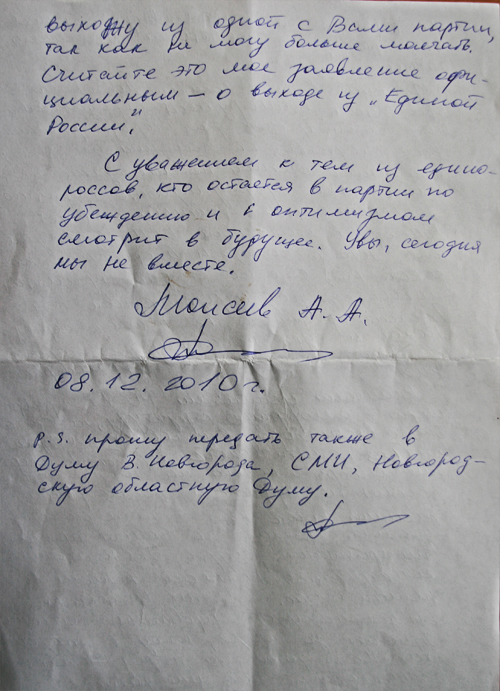 выхожу из одной с Вами партии,
так как не могу больше молчать.
Считайте это мое заявление офи-
циальным – о выходе из „Единой
России."
С уважением к тем из едино-
россов, кто остается в партии по
убеждению и с оптимизмом
смотрит в будущее. Увы, сегодня
мы не вместе.
Моисеев А. А.
08.12.2010г.
P.S. прошу передать также в
Думу В. Новгорода, СМИ, Новгород-
скую областную Думу.